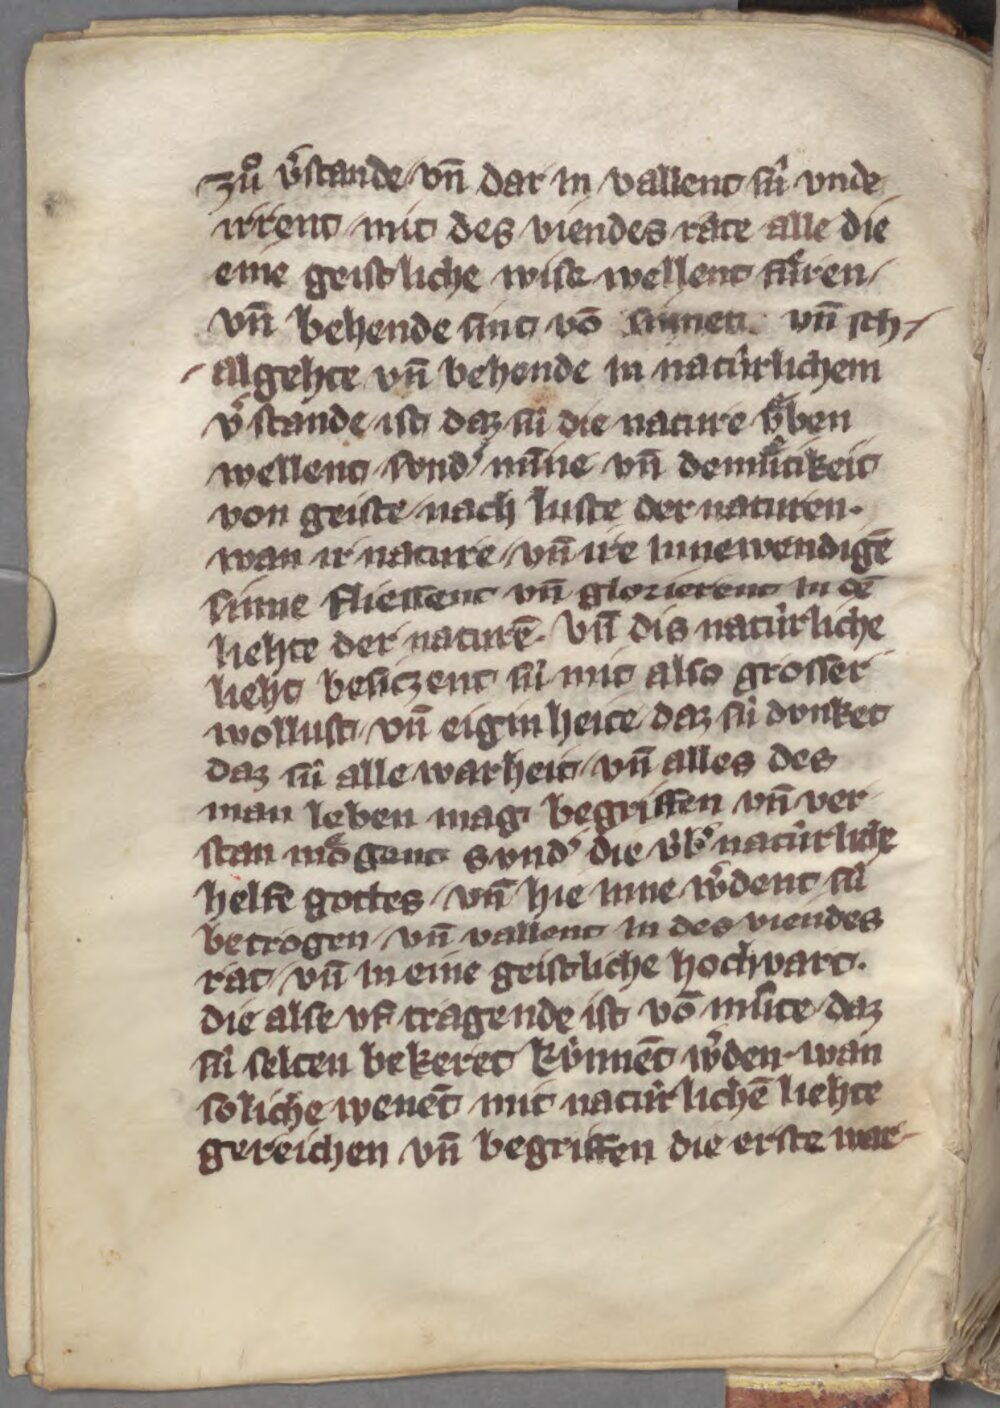 zuͦ v̓stande vn̄ dar in vallent sv́ vnde
irrent mit des viendes rate alle die
eine geistliche wise wellent fuͤren
vn̄ behende sint vō sinnen vn̄ sch-
-algehte vn̄ behende in natúrlichem
v̓stande ist daz sú die nature vͤben
wellent svnd̓ mīne vn̄ demuͤtikeit
von geiste nach luste der naturen.
wan ir nature vn̄ ire innewendigē
sinne fliessent vn̄ glorierent in dē
liehte der naturē. Vn̄ dis natúrliche
lieht besitzent sú mit also grosser
wollust vn̄ eiginheite daz sú dvnket
daz sú alle warheit vn̄ alles des
man leben mag begriffen vn̄ ver
stan moͤgent svnd̓ die v́b̓ natúrliche
helfe gottes vn̄ hie inne w̓dent sú
betrogen vn̄ vallent in des viendes
rat vn̄ in eine geistliche hochvart.
die alse vf tragende ist vō muͤte daz
sú selten bekeret kv́nnēt w̓den wan
soliche wenēt mit natúrlichē liehte
gereichen vn̄ begriffen die erste war-